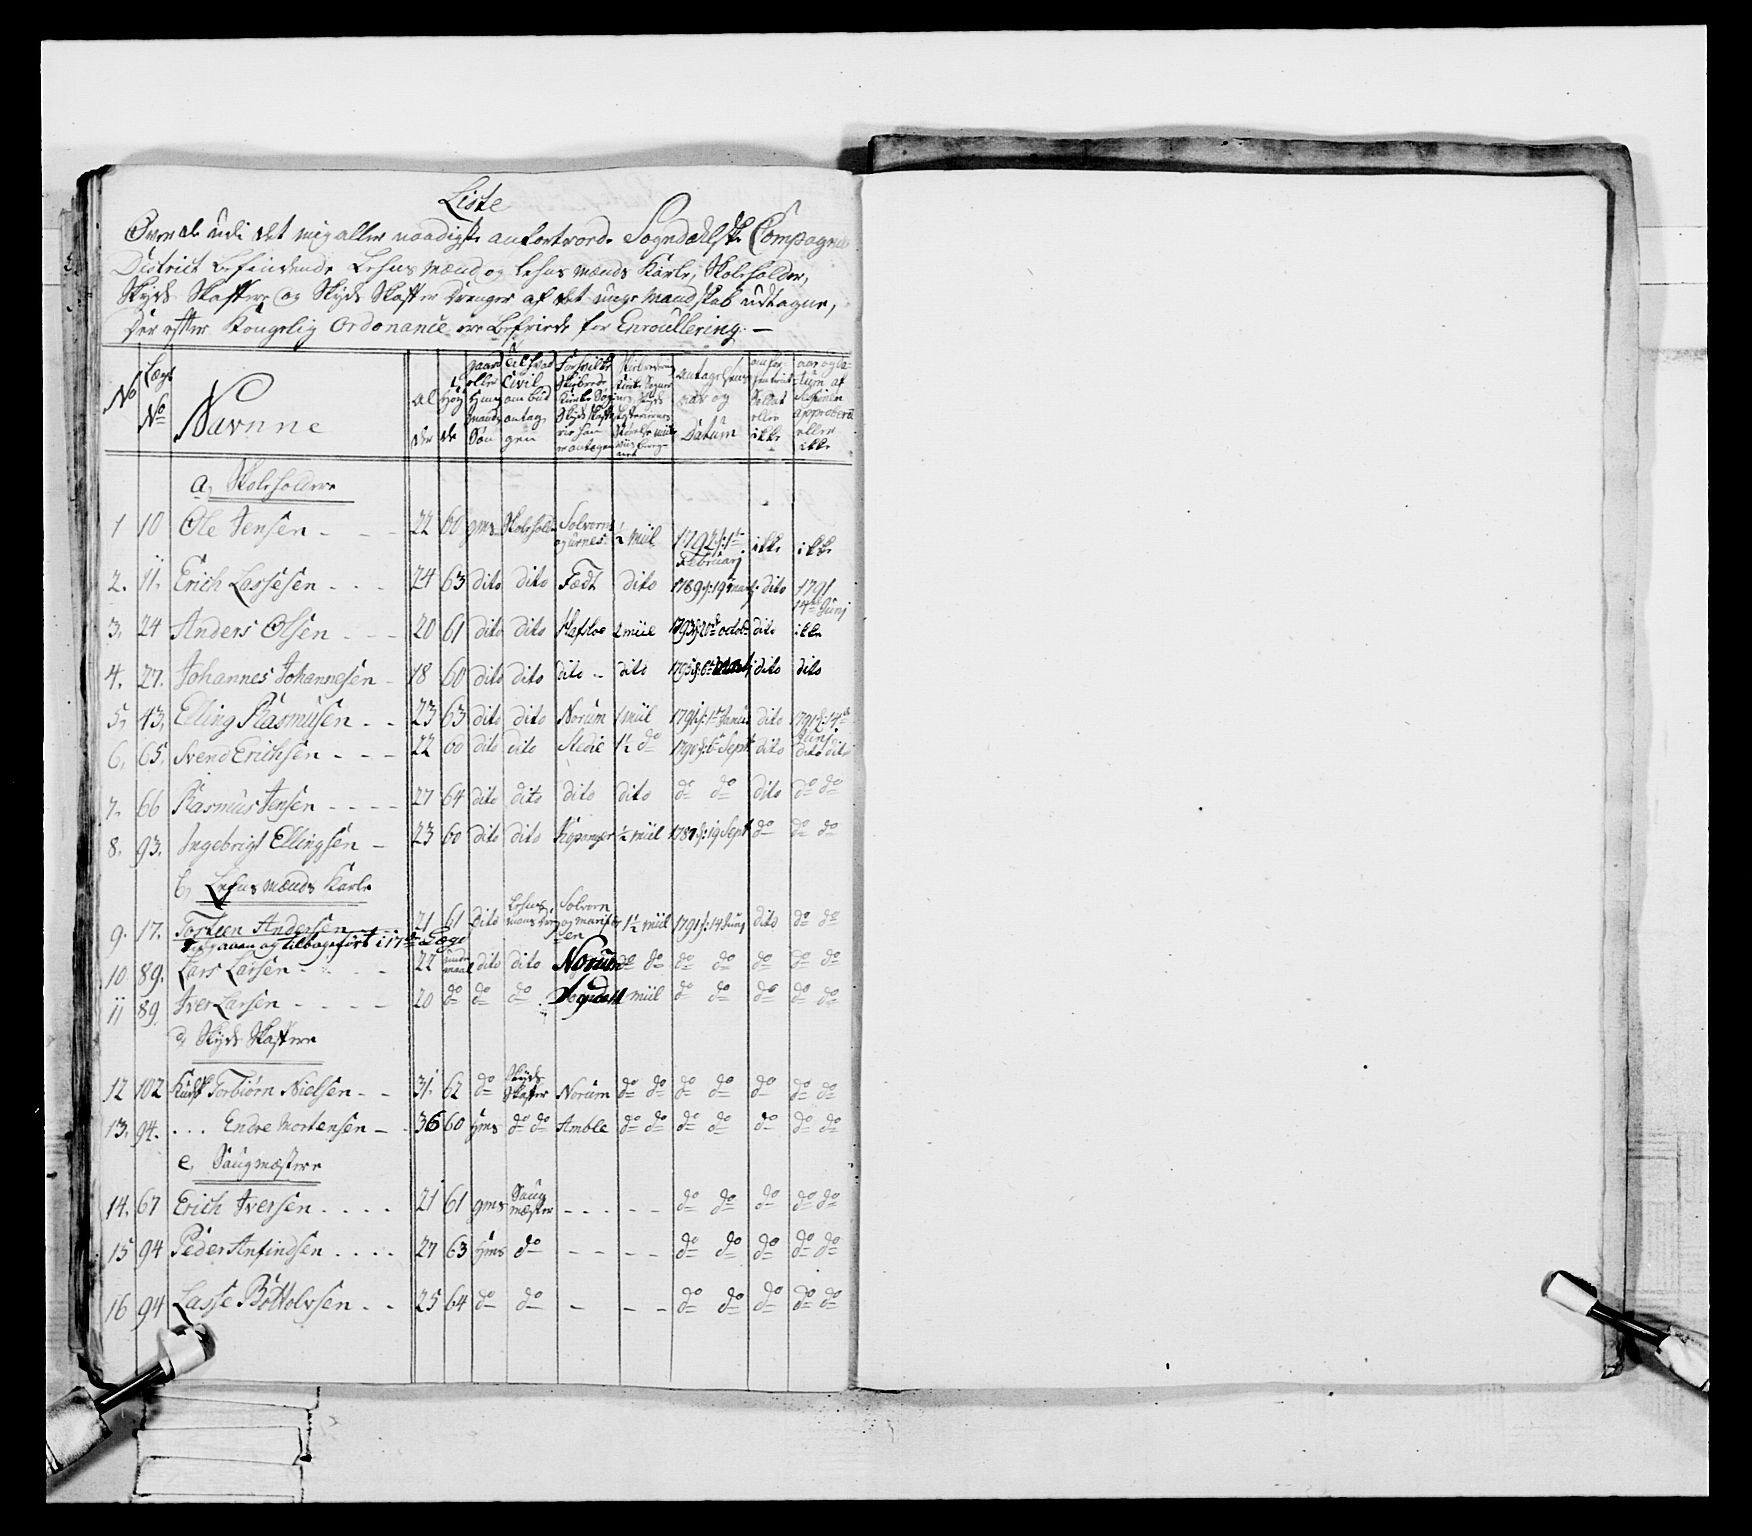 Liste
Over de udi det mig aller naadigst anfortroede Sogndalske Compagnie
District befindende Lehnsmænd og Lehnsmænds Karle, Skoleholder,
Skyds Skaffere og Skyds Skaffer Drenger af det unge Mandskab udtagne,
der efter Kongelig Ordonance ere befriede for Enroullering. —
No Lægs No Navnne al der Høy de gaard eller Huus mands Søn til hvad Civil ombud antagen antagelsens aar og Datum
a, Skoleholdere
1 10 Ole Jensen - - - 22 60 gms Skolehold Solvorn og urnes ½ miil 1792 d: 1te Februarj ikke ikke
2. 11. Erich Lassesen - - - 24 63 dito dito Fædt dito 1789 d: 19 dito 1791 14de Junj
3. 24 Anders Olsen - - - 20 61 dito dito Hafsloe 2 miil 1793 octob dito ikke
4. 27. Johannes Johannesen - 18 60 dito dito dito - dito dito dito
5. 43. Elling Rasmusen - - 23 63 dito dito Norum 1 miil 1791 d: 1te Janus dito 1791 d: 14de Junj
6. 65. Svend Erichsen - - - 22 60 dito dito Stedie 1½ do 1790 d: 6te Sept dito dito dito
7. 66 Rasmus Jensen - - - - 27 64 dito dito dito dito do do dito do do
8. 93. Ingebrigt Ellingsen - 23 60 dito dito Kopanger ½ miil 1787 d: 19 Sept do do do
b, Lehnsmænds Karle
9. 17. Torsten Andersen 21 61 dito Lehns mans Dreng Solvorn og marifieren 1½ miil 1791 d: 14 Junj dito do do
og tilbageført i 17de Læge
10 89. Lars Larsen - - - 22 under maal dito dito Norum do do do do do do do
11 89 Iver Larsen - - - - 20 do do do Sogndahl miil do do do do do
d, Skyds Skaffere
12 102 Kudsk Torbiørn Nielsen - - 31. 62 do Skyds Skaffer Norum do do do do do do do
13. 94. . . . Endre Mortensen - 36 60 hms do do Amble do do do do do do do
e, Saugmæstere
14. 67 Erich Iversen . . . . 21 61 gms Saug mæster - - - - - do do do do do
15 94 Peder Anfindsen . . . . 27 63 hms do - - - - do do do do do
16 94 Lasse Bottolvsen - - 25 64 do do - - - do do do do do